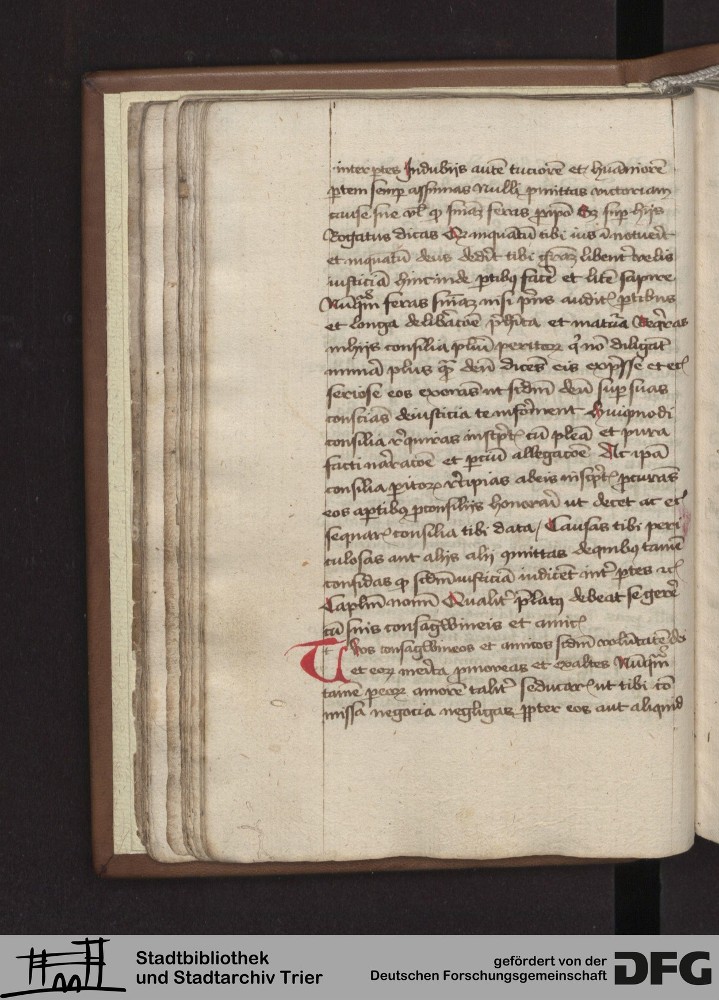 inter ptes Indubijs aute tuciore et huaniore
ptem semp assumas Nulli pmittas victoriam
cause sue vl q snias feras Sup hijs
Rogatus dicas tibi ius inotuerit
et inquatu deus dedit tibi graz libent velis
iusticia hincinde ptibus face et lite sapire
Nuqm feras snias nisi pus audit ptibus
et longa delibacoe phita et matura Reqras
in hijs consilia pliu peritor q no diligat
mima plus qm deu dices eis expsse et
seriose eos exoras ut sidm deu sup suas
conscias de iusticia te informent Huiusmodi
consilia rquiras inscpt cu plea et pura
facti narracoe et pciu allegacoe Ac ipa
consilia pitor rcipias ab eis inscpt pcuras
eos a ptibus p consilijs honorari ut decet ac
sequar consilia tibi data / Causas tibi peri
culosas aut alijs alij omittas de quibus tame
confidas q sidm iusticia iudicet int ptes
Caplm nonu Qualit plat9 debeat se gere
cu suis consagwineis et amic
Tuos consagwineos et amicos sidm volutate dei
et eor merita pmoveas et exaltes Nuqm
tame p eor amore talit seducar ut tibi co
missa negocia negligas ppter eos aut aliquid
Stadtbibliothek
und Stadtarchiv Trier
gefördert von der
Deutschen Forschungsgemeinschaft
DFG